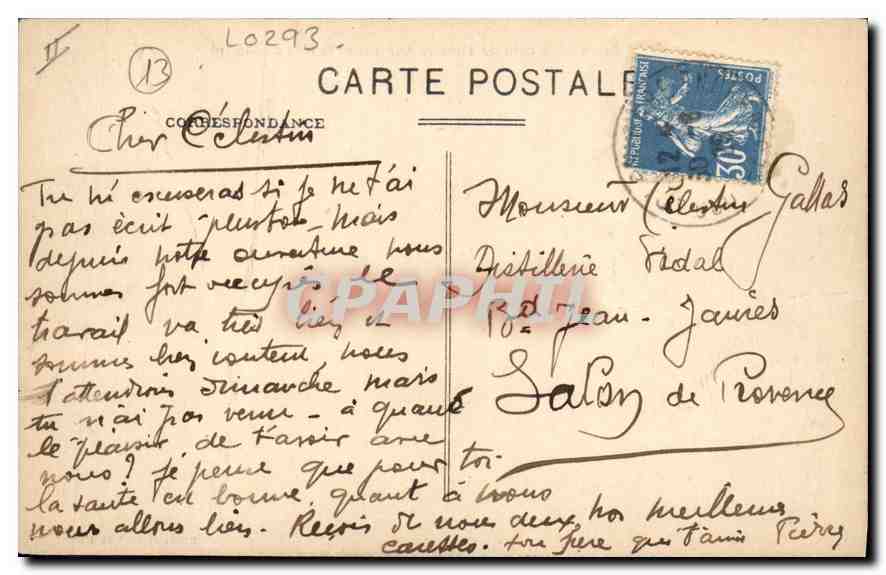 II
13
L0293.
CARTE POSTALE
CORRESPONDANCE
REPUBLIQUE FRANÇAISE
POSTES
30
Cher Célestin
Tu m'excuseras si je ne t'ai
pas écrit plustôt - mais
depuis notre ouverture nous
sommes fort occupés le
travail va très bien et
sommes bien content nous
t'attendions dimanche mais
tu n'ai pas venu - à quand
le plaisir de t'avoir avec
nous? Je pense que pour toi
la santé est bonne, quant à nous
nous allons bien. Reçois de nous deux nos meilleures
caresses. ton frère qui t'aime Pierre
Monsieur Célestin Gallas
Distillerie Vidal
Bd Jean-Jaurès
Salon de Provence
CPAPHIL